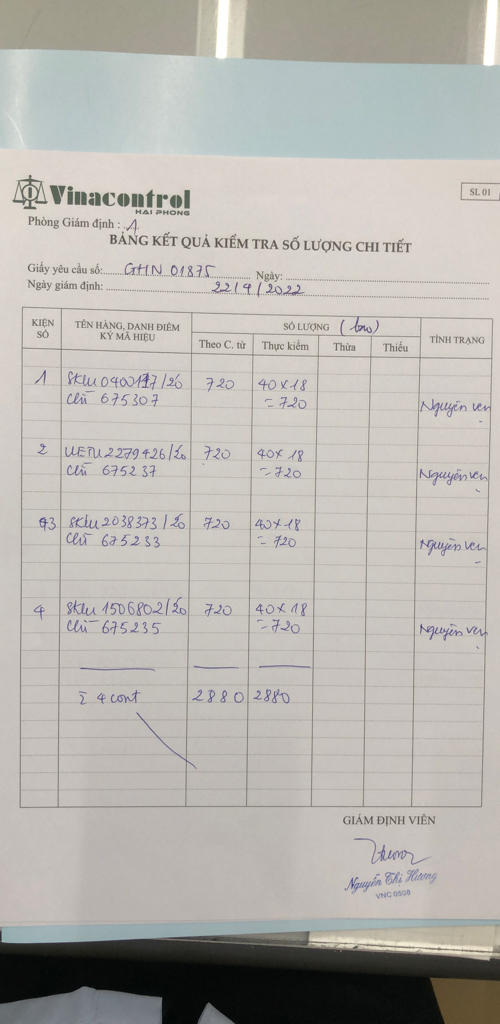 Vinacontrol
HAI PHONG
SL 01
Phòng Giám định : 1
BẢNG KẾT QUẢ KIỂM TRA SỐ LƯỢNG CHI TIẾT
Giấy yêu cầu số: GHN 01875 Ngày:
Ngày giám định: 22/9/2022
KIỆN SỐ TÊN HÀNG, DANH ĐIỂM KÝ MÃ HIỆU SỐ LƯỢNG (bao) TÌNH TRẠNG
Theo C. từ Thực kiểm Thừa Thiếu
1 720 40 x 18
Chì 675307 = 720 Nguyên vẹn
2 UETU 2279426/20 720 40 x 18
Chì 675237 = 720 Nguyên vẹn
3 SKLU 2038373/20 720 40 x 18
Chì 675233 = 720 Nguyên vẹn
4 SKLU 1506802/20 720 40 x 18
Chì 675235 = 720 Nguyên vẹn
Σ 4 cont 2880 2880
GIÁM ĐỊNH VIÊN
Nguyễn Thị Hương
VNC 0508